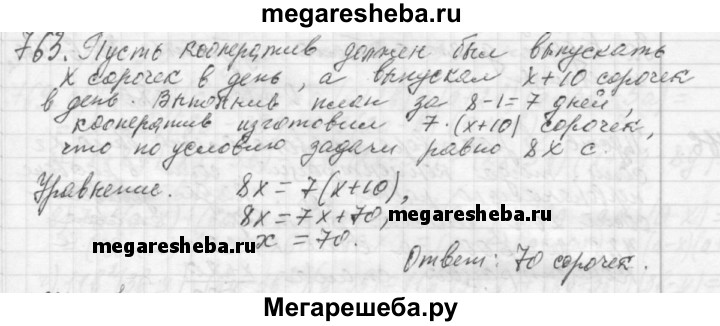 megaresheba.ru
763. Пусть кооператив должен был выпускать
x сорочек в день, а выпускал x+10 сорочек
в день. Выполнив план за 8-1=7 дней,
кооператив изготовил 7·(x+10) сорочек,
что по условию задачи равно 8x с.
Уравнение. 8x=7(x+10),
8x=7x+70, megaresheba.ru
megaresheba.ru x=70.
Ответ: 70 сорочек.
Мегарешеба.ру